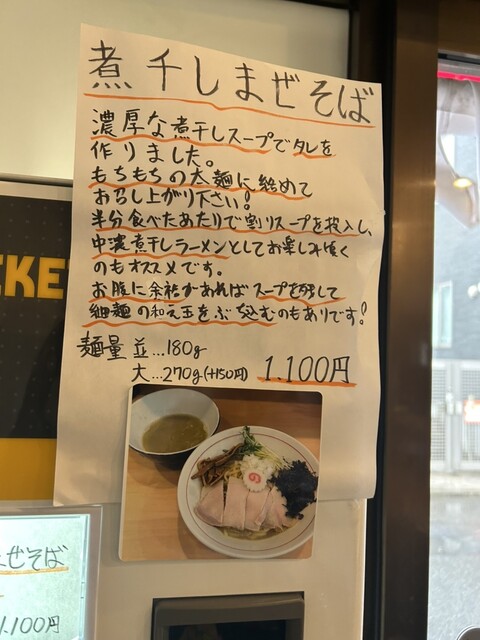 煮干しまぜそば
濃厚な煮干しスープでタレを
作りました。
もちもちの太麺に絡めて
お召し上がり下さい!
半分食べたあたりで割りスープを投入し、
中濃煮干しラーメンとしてお楽しみ頂く
のもオススメです。
お腹に余裕があればスープを残して
細麺の和え玉をぶち込むのもありです!
麺量 並…180g
大…270g(+150円)
1.100円
EKE
ぜそば
1.100円